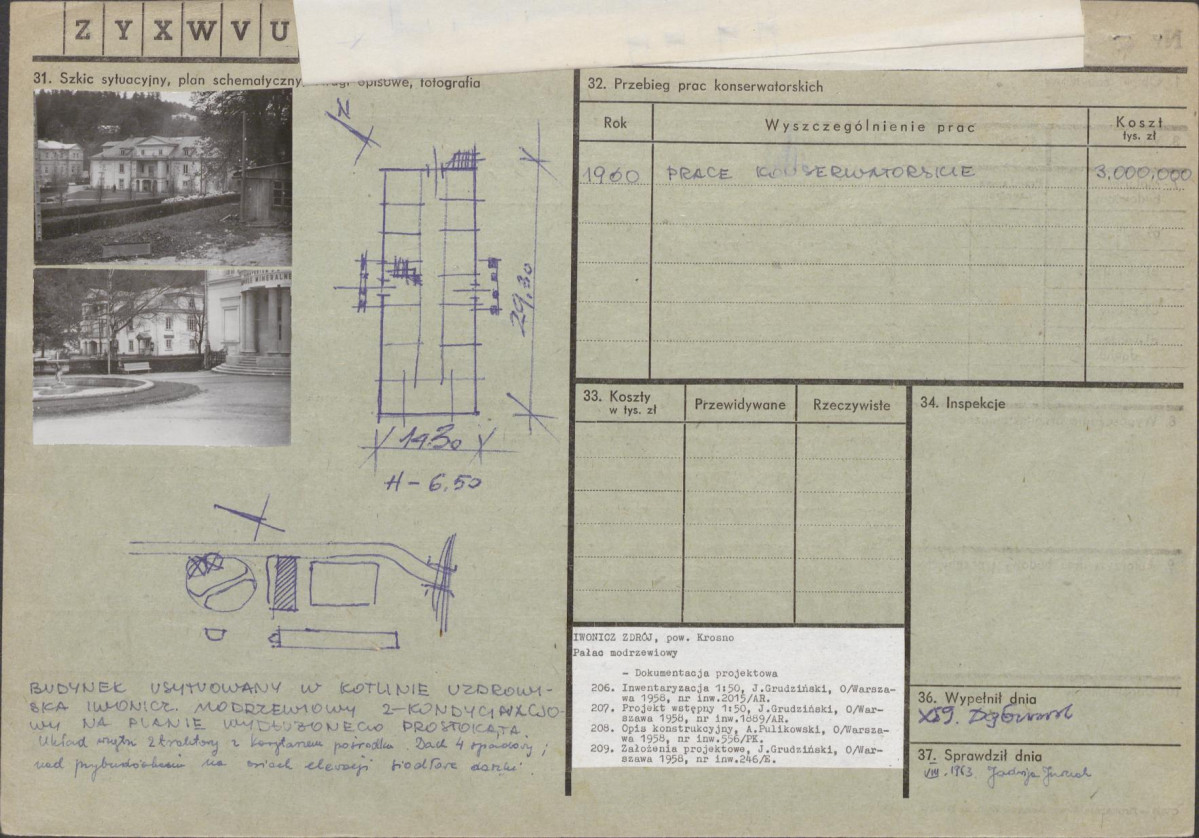 Z Y X W V U
31. Szkic sytuacyjny, plan schematyczny, opisowe, fotografia
N
29,30
14.30
H - 6,50
BUDYNEK USYTUOWANY W KOTLINIE UZDROWI-
SKA IWONICZ. MODRZEWIOWY 2-KONDYGNACJO-
WY NA PLANIE WYDŁUŻONEGO PROSTOKĄTA.
Układ wnętrz 2 traktowy z korytarzem pośrodku. Dach 4 spadowy;
nad przybudówkami na osiach elewacji siodłate daszki.
32. Przebieg prac konserwatorskich
Rok
Wyszczególnienie prac
Koszt
tys. zł
1960 PRACE KONSERWATORSKIE 3,000,000
33. Koszty
w tys. zł
Przewidywane
Rzeczywiste
34. Inspekcje
IWONICZ ZDRÓJ, pow. Krosno
Pałac modrzewiowy
- Dokumentacja projektowa
206. Inwentaryzacja 1:50, J.Grudziński, O/Warsza-
wa 1958, nr inw.2015/AR.
207. Projekt wstępny 1:50, J.Grudziński, O/War-
szawa 1958, nr inw.1889/AR.
208. Opis konstrukcyjny, A.Pulikowski, O/Warsza-
wa 1958, nr inw.556/PK.
209. Założenia projektowe, J.Grudziński, O/War-
szawa 1958, nr inw.246/E.
36. Wypełnił dnia
X59.
37. Sprawdził dnia
VIII. 1963.